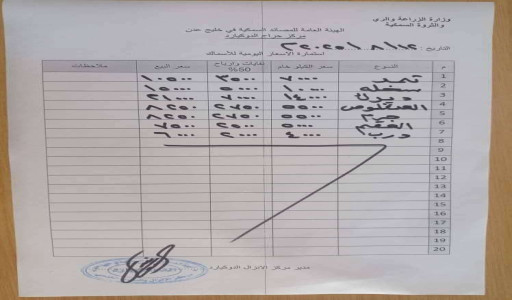 وزارة الزراعة والري
والثروة السمكية
الهيئة العامة للمصائد السمكية في خليج عدن
مركز حراج الدوكيارد
التاريخ: ٢٠٢٥/٨/١٢
استمارة الاسعار اليومية للأسماك
م النوع سعر الكيلو خام نفايات وارباح 50% سعر البيع ملاحظات
1 ثمد ٧٠٠٠ ٣٥٠٠ ١٠٥٠٠
2 سخله ١٠٠٠٠ ٥٠٠٠ ١٥٠٠٠
3 ديرك ١٤٠٠٠ ٧٠٠٠ ٢١٠٠٠
4 ٥٥٠٠ ٢٧٥٠ ٨٢٥٠
5 ٥٥٠٠ ٢٧٥٠ ٨٢٥٠
6 ٥٠٠٠ ٢٥٠٠ ٧٥٠٠
7 درب ٤٠٠٠ ٢٠٠٠ ٦٠٠٠
8
9
10
11
12
13
14
15
16
17
18
19
20
مدير مركز الانزال الدوكيارد